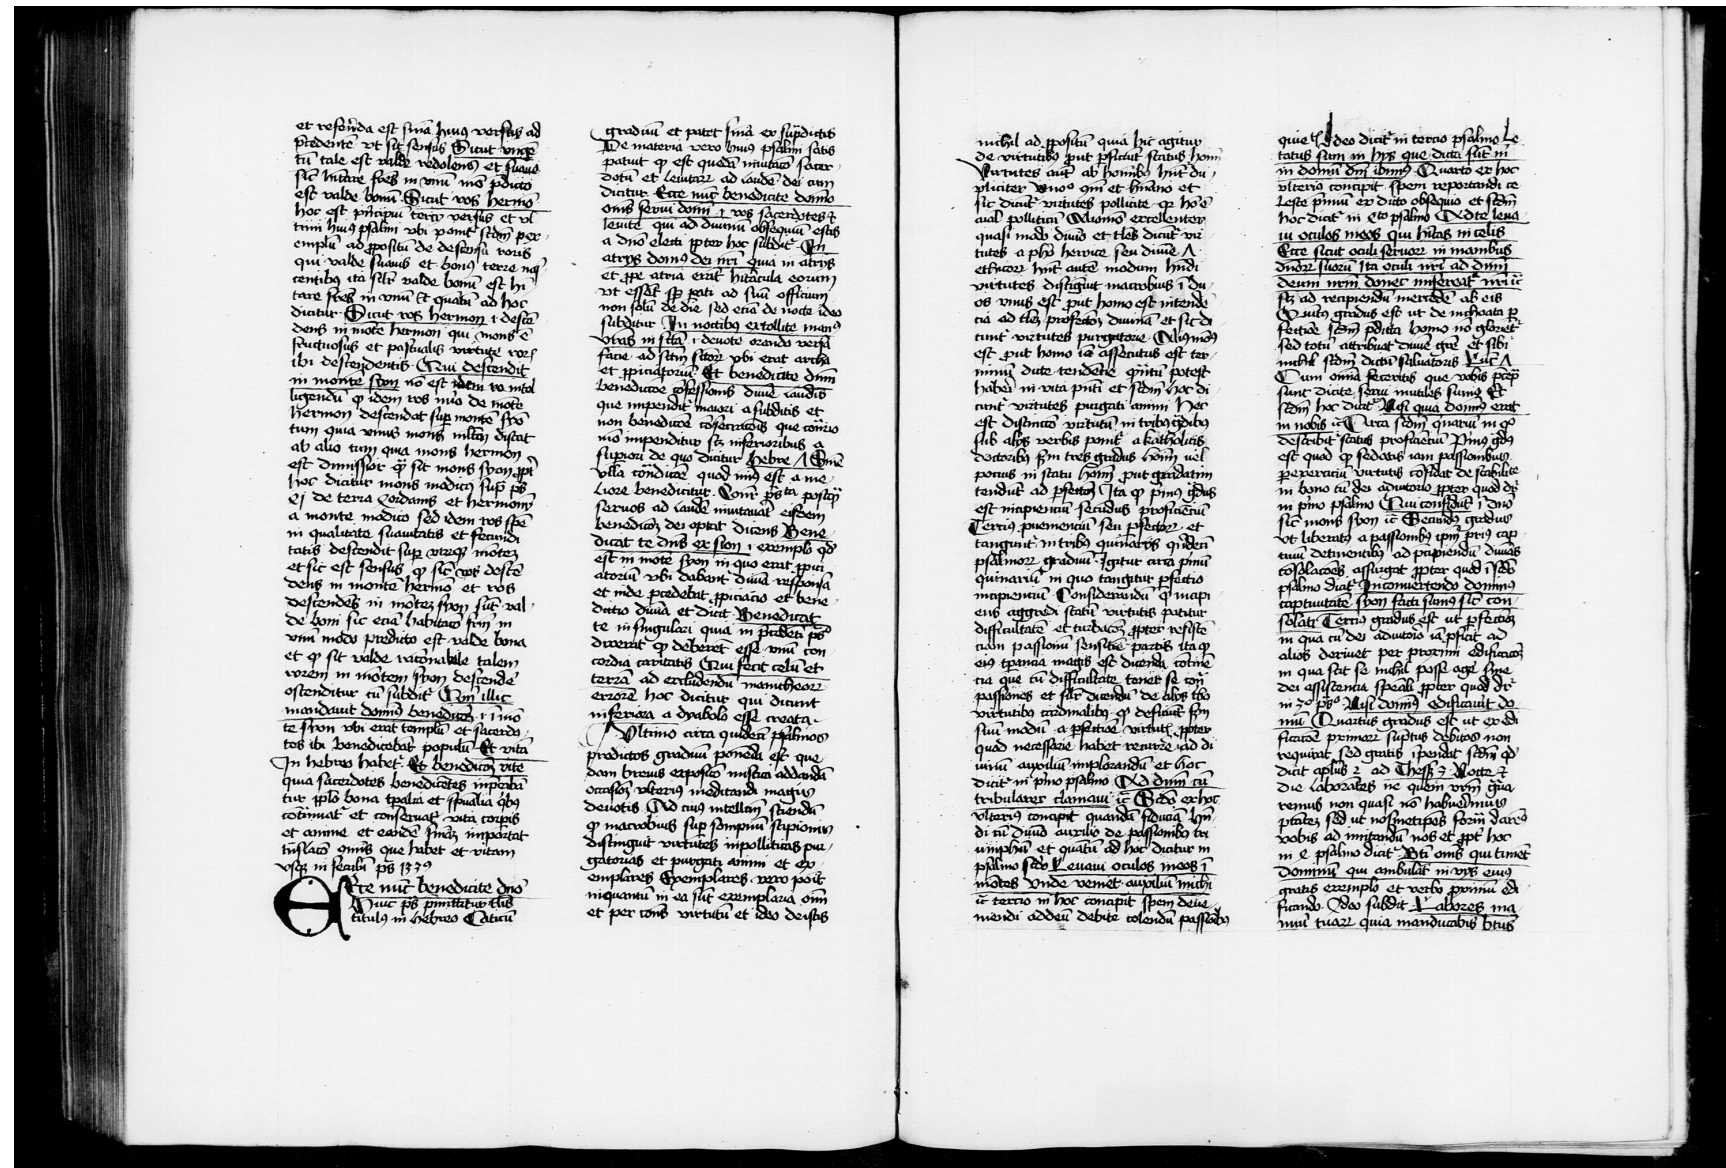 et referenda est sn̄ia huiꝰ versus ad
p̄cedentē vt sit sensus Sicut vngē
tū tale est valde redolens et suaue
sic hītare frēs in vnū mō p̄dicto
est valde bonū Sicut ros hermō
hoc est principiū tercij versus et vl
timi huiꝰ psalmi vbi ponit᷑ scd̄m exe
emplū ad ꝓpositū de descensu roris
qui valde suauis et bonꝰ terre nas
centibꝫ ita silr̄ valde bonū est hi
tare frēs in vnū Et quātū ad hoc
dicitur Sicut ros hermon .i. descē
dens in mōtē hermon qui mons ē
fructuosus et pascualis virtute roris
ibi descendentis Qui descendit
in montē syon nō est idem ros intel
ligendū ꝙ idem ros nūo de mōte
hermon descendat suꝑ montē syō
tum quia vnus mons ml̄tū distat
ab alio tum quia mons hermon
est dimissior q̄ sit mons syon ꝓpt̄
hoc dicitur mons modicꝰ sup̄ p̄s
xlj de terra Jordanis et hermonij
a monte modico sed idem ros spē
in qualitate suauitatis et fecundi
tatis descendit suꝑ vtrūqꝫ mōtez
et sic est sensus ꝙ sic ros descē
dens in montē hermō et ros
descendēs in mōtez syon sūt val
de boni sic eciā habitatō frm̄ in
vnū modo predicto est valde bona
et ꝙ sit valde racōnabile talem
rorem in mōtem syon descende
ostenditur cū subdit᷑ Qm̄ illic
mandauit domīꝰ benedictōꝫ .i. in mō
te syon vbi erat templū et sacerdo
tes ibi benedicebāt populū Et vitā
In hebreo habet᷑ Et benedictōꝫ vite
quia sacerdotes benedicētes inp̄cabā
tur ꝓplo bona tp̄alia et spūalia qͥbꝫ
cōtinuat᷑ et conseruat᷑ vita corpis
et anime et eandē sn̄iaꝫ importat
trāslatō om̄is que habet et vitam
vsqꝫ in seculū p̄s 1339
Ecce nūc benedicite dn̄o
Huic p̄s p̄mittitur tl̄is
titulꝰ in hebreo Cāticū
graduū et patet sn̄ia ex sup̄dictis
De materia vero huiꝰ psalmi satis
patuit ꝙ est quedā inuitatō sacer
dotū et leuitaꝝ ad laudē dei cum
dicitur Ecce nūc benedicite domīo
om̄s serui domī .i. vos sacerdotes et
leuite qui ad diuinū obsequiū estis
a dn̄o electi ꝓpter hoc subdit᷑ Qui
atrijs domꝰ dei nr̄i quia in atrijs
et ꝓpe atria erāt hītacula eorum
vt essēt sꝑ pati ad suū officium
non solū de die sed eciā de nocte ideo
subditur In noctibꝫ extollite manꝰ
vr̄as in scā .i. deuote orando versa
facie ad scm̄ scōꝝ vbi erat archa
et ꝓpiciatoriū Et benedicite dn̄m
benedictōe ꝯfessionis diuīe laudis
que impendit᷑ maiori a subditis et
non benedictōe cōsecracōis que cont̄rio
mō impenditur scꝫ inferioribus a
supiori de quo dicitur Hebre Λ Sine
vlla cōtradictōe quod minꝰ est a me
liore benedicitur Cōnr̄ p̄sta postqͣ
seruos ad laudē inuitauit eisdem
benedictōꝫ dei optat dicens Bene
dicat te dn̄s ex sion .i. exemplo qd̄
est in mōte syon in quo erat ꝓpici
atoriū vbi dabant᷑ diuīa respōnsa
et inde ꝓcedebat ꝓpiciacio et bene
dictio diuīa et dicit Benedicat
te in singulari quia in p̄cedēti p̄s
dixerat ꝙ deberēt esse vnū con
cordia caritatis Qui fecit celū et
terrā ad excludendū manicheoꝝ
errorē hoc dicitur qui dicunt
inferiora a dyabolo esse creata
Vltimo circa quīdecī psalmos
predictos graduū ponēda est que
dam breuis expositō mistica addendā
occasiōꝫ vlteriꝰ meditandi magis
deuotis Ad cuiꝰ intellctm̄ sciendū
ꝙ macrobius suꝑ sompniū scipionis
distinguit virtutes in pollticas pur
gatorias et purgati animi et ex
emplares Exemplares vero ponit
inquantū in ea sūt exemplaria om̄
et per cons̄ virtutū et ideo de istis
nichil ad ꝓpositū quia hic agitur
de virtutibꝫ put ꝑficiūt status homī
Virtutes aūt ab homībꝫ hn̄t᷑ du
pliciter Vno° qm̄ et hūano et
sic dicūt᷑ virtutes pollitice ꝙ hō ē
aīal polliticū Aliomō excellenter
quasi modo diuīo et tl̄es dicūt᷑ vir
tutes a ph̄o heroice seu diuīe Λ
ethicoꝝ hūc autē modum hn̄di
virtutes distīguit macrobius ī du
os vnus est put homo est in tende
cia ad tl̄eꝫ ꝑfectōꝫ diuinā et sic di
cunt᷑ virtutes purgatorie Aliomō
est put homo iā assecutus est ter
minū dicte tendencie qͥntū potest
haberi in vita p̄nti et scd̄m hoc di
cunt᷑ virtutes purgati animi Hec
est distinctō virtutū in tribꝰ gͣdibꝰ
sub alijs verbis ponit᷑ a katholicis
doctoribꝫ scm̄ tres gradus homī vel
pocius in statu homī put gradatim
tendit᷑ ad ꝑfectōꝫ Ita ꝙ p̄mꝰ gͣdus
est incipienciū secūdus proficienciū
Tercius ꝑueniencium seu ꝑfectoꝝ et
tanguit᷑ in tribꝫ quinarijs quīdecī
psalmoꝝ graduū Igitur circa p̄mū
quinariū in quo tangitur ꝑfectio
incipienciū Considerandū ꝙ incipi
ens aggredi statū virtutis patitur
difficultatē et turbacōꝫ ꝓpter resistē
ciam passionū sensitiue partis ita ꝙ
eiꝰ tꝑancia magis est dicenda cōtinē
cia que cū difficultate tenet se cont᷑
passiones et silr̄ dicendū de alijs tbꝫ
virtutibꝫ cardinalibꝫ ꝙ deficiūt scm̄
suū modū a ꝑfectōe virtutū ꝓpter
quod necessarie habet recurre ad di
uinū auxiliū implorandū et hoc
dicit᷑ in p̄mo psalmo Ad dn̄m cū
tribularer clamaui ic̄ Scd̄o ex hoc
vlterius concipit quandā fiduciā hn̄
di cū diuīo auxilio de passionibꝫ tri
umphū et quātū ad hoc dicitur in
psalmo scd̄o Leuaui oculos meos ī
mōtes vnde veniet auxiliū michi
ic̄ tercio in hoc concipit spem deue
niendi ad deū debite colendū passiōibꝰ
quie Ideo dicit᷑ in tercio psalmo Le
tatus sum in hijs que dicta sūt mi
in domū dn̄i ibimꝰ Quarto ex hoc
vlterius concipit spem reportandi ce
leste p̄miū ex dicto obsequio et scd̄m
hoc dicit᷑ in 4to psalmo Ad te leua
ui oculos meos qui hītas in celis
Ecce sicut oculi seruoꝝ in manibus
dn̄oꝝ suorū Ita oculi nr̄i ad dn̄m
deum nr̄m donec misereat᷑ nr̄i ic̄
scꝫ ad recipiendū mercedē ab eis
Quintꝰ gradus est ut de inchoata ꝑ
fectiōe scd̄m p̄dicta homo nō gloriet᷑
sed totū attribuat diuīe grē et sibi
nichil scd̄m dictū saluatoris Luc Λ
Cum om̄ia feceritis que vobis p̄cepͭ
sunt dicite serui inutiles sumꝰ Et
scd̄m hoc dicit᷑ Nisi quia domīꝰ erat
in nobis ic̄ Circa scd̄m qnariū in qͦ
describit᷑ status proficienciū P̄mꝰ gͣdꝰ
est quod ꝙ sedatis iam passionibus
ꝑ exerciciū virtutis cōfidat de stabilite
in bono cū dei adiutorio ꝓpter quod dr̄
in p̄mo psalmo Qui confidūt ī dn̄o
sic mons syon ic̄ Secundꝰ gradus
Ut liberatꝰ a passionibꝫ ipm̄ priꝰ cap
tiuū detinentibꝫ ad ꝑcipiendū diuīas
cōsolacōes assurgat ꝓpter quod ī scd̄o
psalmo dicit᷑ In conuertendo dominus
captiuitatē syon facti sumꝰ sic̄ con
solati Tercius gradus est ut ꝑfectōꝫ
in qua cū dei adiutorio iā ꝓficit ad
alios deriuet per proximi edificacōꝫ
in qua scit se nichil posse age sine
dei assistencia spēali ꝓpter quod dr̄
in 3° p̄s° Nisi domīꝰ edificauit do
mū Quartus gradus est ut ex edi
ficacōe primoꝝ sūptus debitos non
requirat sed gratis īpendat scd̄m qd̄
dicit apl̄us 2 ad Thess̄ 3 Nocte et
die laborātes ne quem vrm̄ gͣua
remus non quasi nō habuerimus
ptātez sed ut nosmetipos formā darēꝰ
vobis ad imitandū nos et ꝓpt̄ hoc
in 4 psalmo dicit᷑ Bt̄i om̄s qui timēt
dominū qui ambulāt in vijs eius
gratis exemplo et verbo proximū edi
ficando Ideo subdit Labores ma
nuū tuaꝝ quia manducabis b̄tus